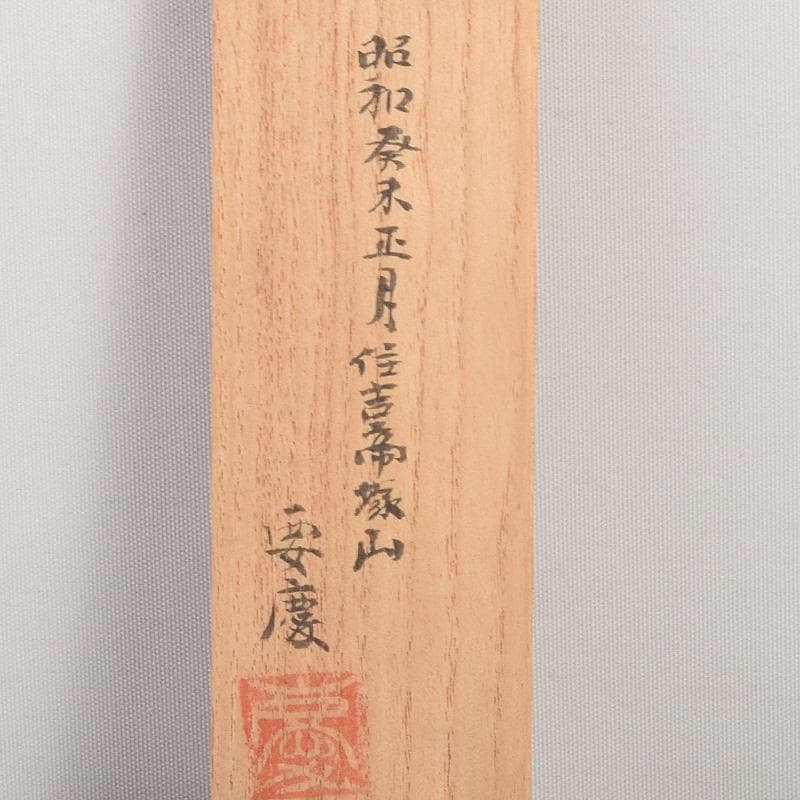 昭和癸未正月住吉帝塚山
要慶